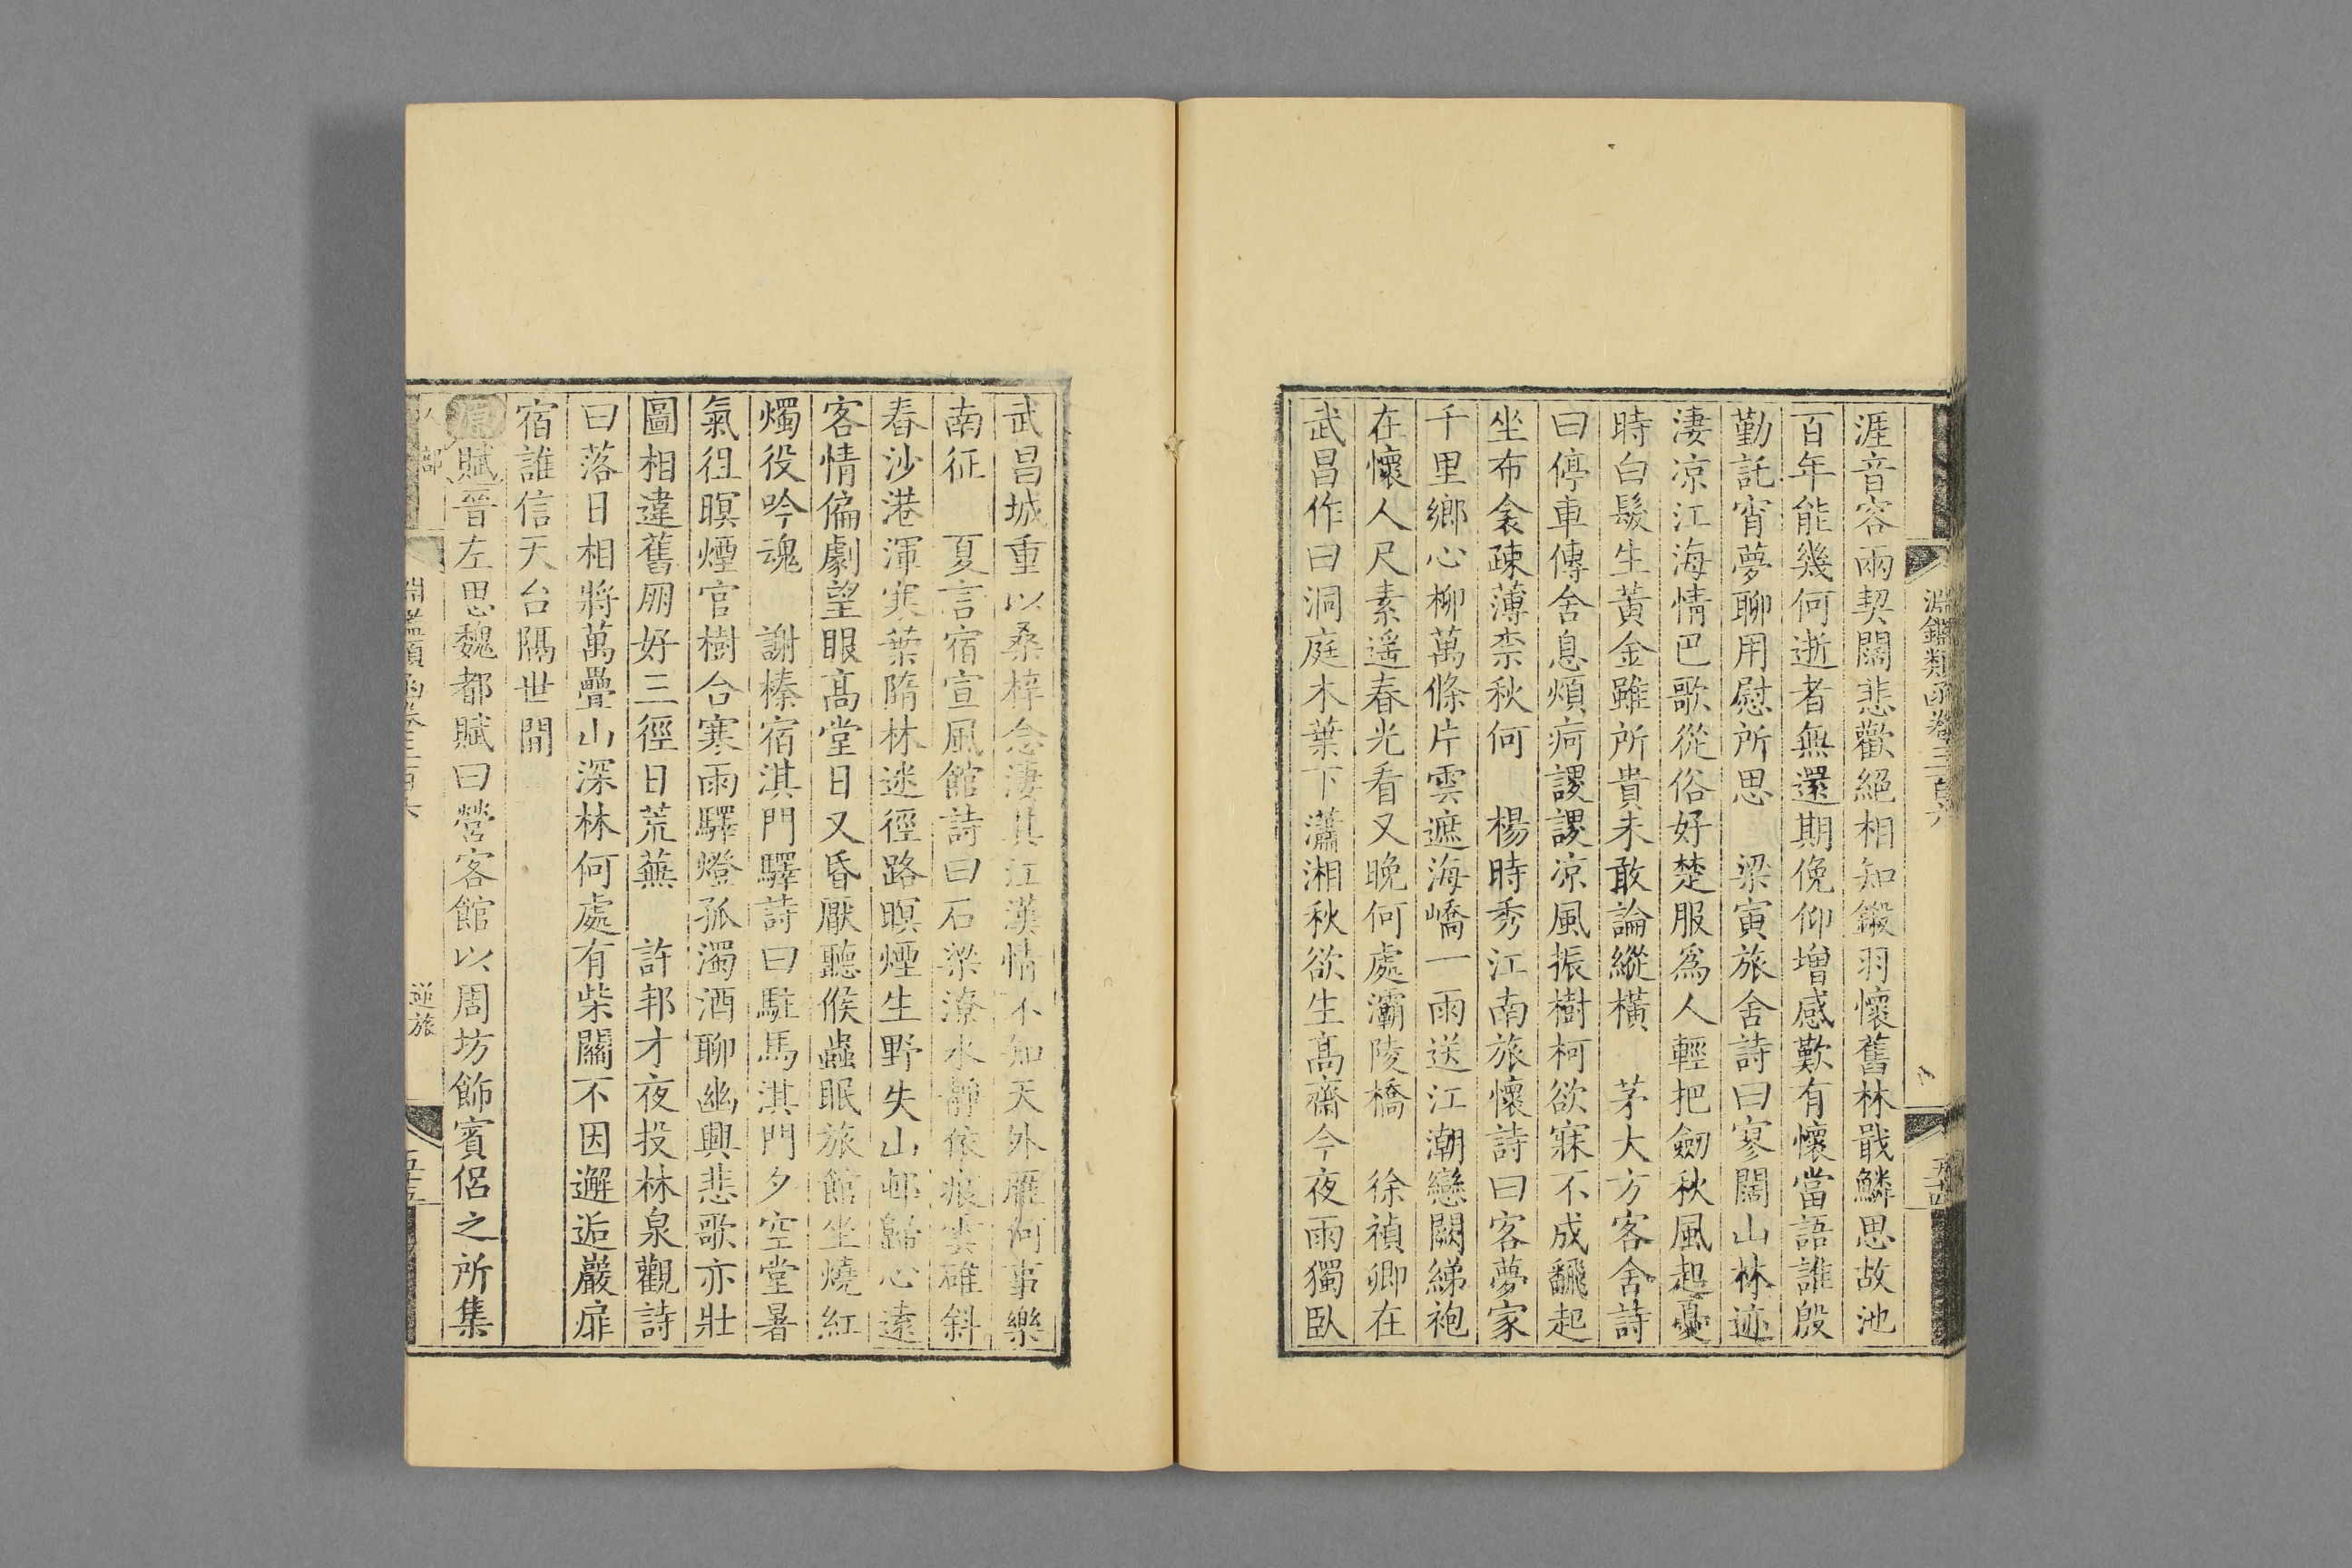 淵鑑類函卷三百六
涯音容兩契闊悲歡絕相知鎩羽懷舊林戢鱗思故池
百年能幾何逝者無還期俛仰增感歎有懷當語誰殷
勤託宵夢聊用慰所思　梁寅旅舍詩曰寥闊山林迹
淒凉江海情巴歌從俗好楚服爲人輕把劒秋風起憂
時白髮生黃金雖所貴未敢論縱橫　茅大方客舍詩
曰停車傳舍息煩疴謖謖凉風振樹柯欲寐不成飜起
坐布衾疎薄柰秋何　楊時秀江南旅懷詩曰客夢家
千里鄉心柳萬條片雲遮海嶠一雨送江潮戀闕綈袍
在懷人尺素遙春光看又晚何處灞陵橋　徐禎卿在
武昌作曰洞庭木葉下瀟湘秋欲生髙齋今夜雨獨臥
武昌城重以桑梓念淒其江漢情不知天外雁何事樂
南征　夏言宿宣風館詩曰石梁潦水靜依痕雲碓斜
舂沙港渾寒葉隋林迷徑路暝煙生野失山邨歸心遠
客情偏劇望眼髙堂日又昏厭聽候蟲眠旅館坐燒紅
燭役吟魂　謝榛宿淇門驛詩曰駐馬淇門夕空堂暑
氣徂暝煙官樹合寒雨驛燈孤濁酒聊幽興悲歌亦壯
圖相違舊朋好三徑日荒蕪　許邦才夜投林泉觀詩
曰落日相將萬疊山深林何處有柴關不因邂逅巖扉
宿誰信天台隔世間
賦晉左思魏都賦曰營客館以周坊飾賓侶之所集
人部
淵鑑類函卷三百六
逆旅